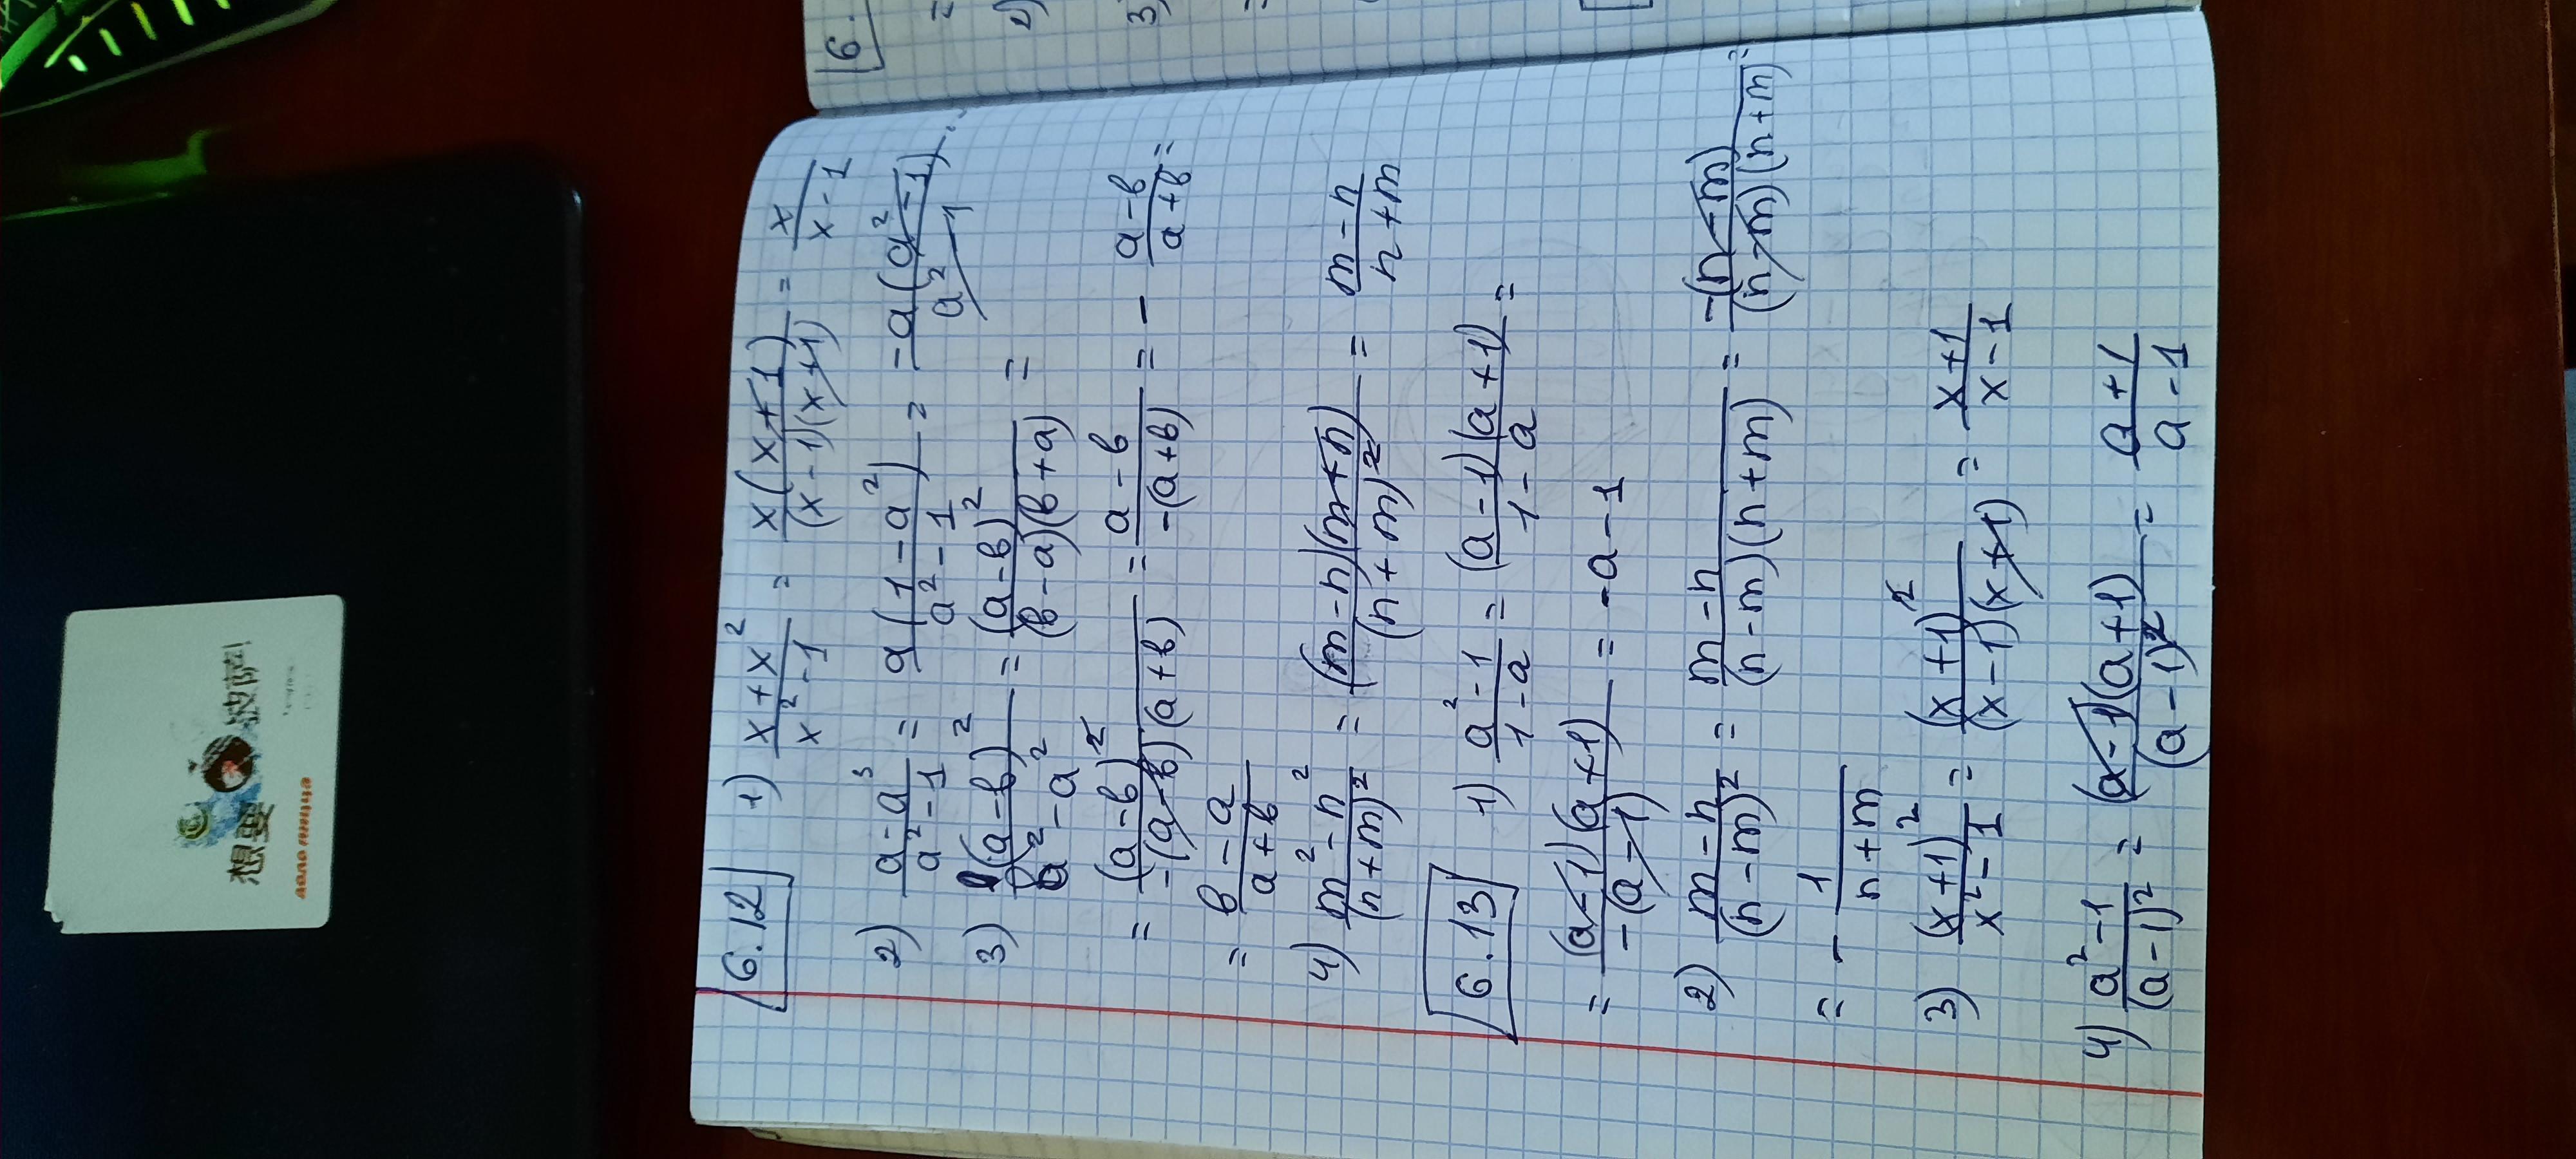 6.12 1) (x+x²)/(x²-1) = x(x+1)/((x-1)(x+1)) = x/(x-1)
2) (a-a³)/(a²-1) = a(1-a²)/(a²-1) = -a(a²-1)/(a²-1)
3) (a-b)²/(b²-a²) = (a-b)²/((b-a)(b+a)) =
= (a-b)²/(-(a-b)(a+b)) = (a-b)/(-(a+b)) = - (a-b)/(a+b) =
= (b-a)/(a+b)
4) (m²-n²)/(n+m)² = (m-n)(m+n)/(n+m)² = (m-n)/(n+m)
6.13 1) (a²-1)/(1-a) = (a-1)(a+1)/(1-a) =
= (a-1)(a+1)/(-(a-1)) = -a-1
2) (m-n)/(n-m)² = (m-n)/((n-m)(n+m)) = -(n-m)/((n-m)(n+m)) =
= - 1/(n+m)
3) (x+1)²/(x²-1) = (x+1)²/((x-1)(x+1)) = (x+1)/(x-1)
4) (a²-1)/(a-1)² = (a-1)(a+1)/(a-1)² = (a+1)/(a-1)
6.
2)
3)
想要
放開